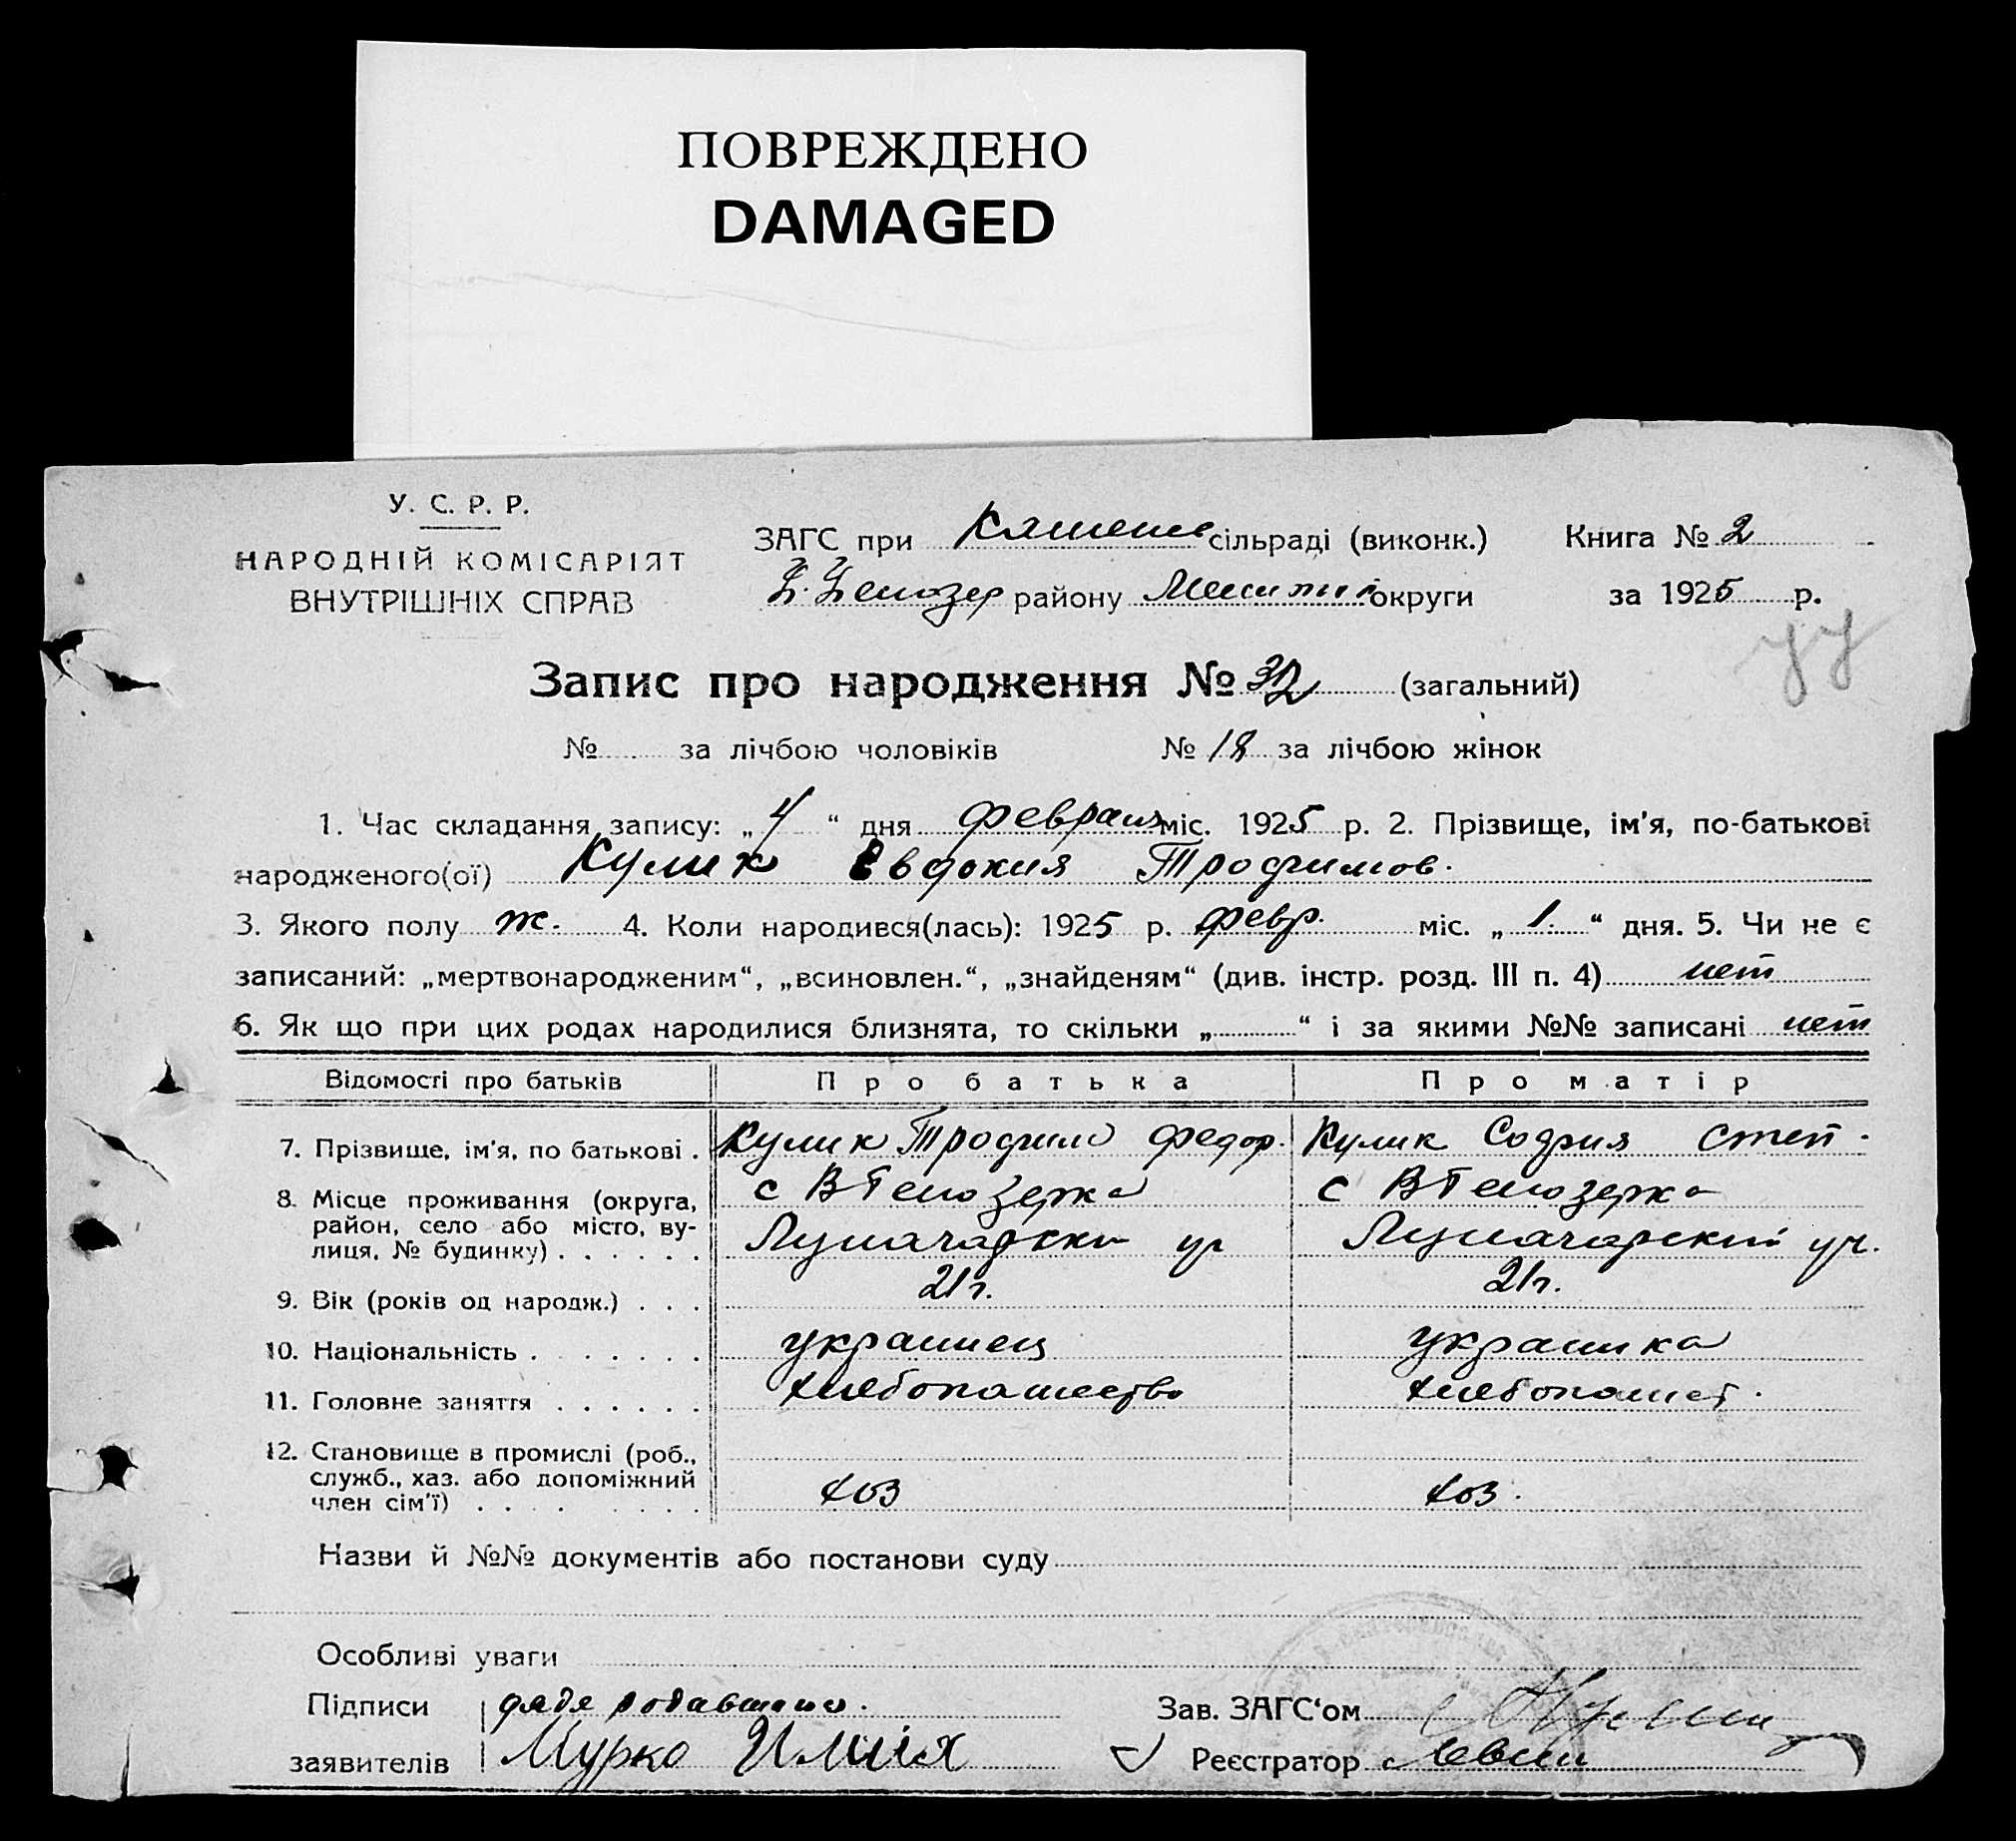 ПОВРЕЖДЕНО
DAMAGED
У. С. Р. Р.
НАРОДНІЙ КОМІСАРІЯТ
ВНУТРІШНІХ СПРАВ
ЗАГС при сільраді (виконк.) Книга № 2
району округи за 1925 р.
Запис про народження № 32 (загальний)
№ за лічбою чоловіків № 18 за лічбою жінок
1. Час складання запису: „4“ дня февраля міс. 1925 р. 2. Прізвище, ім'я, по-батькові
народженого(ої) Кулик Евдокия Трофимов.
3. Якого полу ж. 4. Коли народився(лась): 1925 р. февр. міс. „1.“ дня. 5. Чи не є
записаний: „мертвонародженим“, „всиновлен.“, „знайденям“ (див. інстр. розд. III п. 4) нет
6. Як що при цих родах народилися близнята, то скільки „ “ і за якими №№ записані нет
Відомості про батьків Про батька Про матір
7. Прізвище, ім'я, по батькові . Кулик Трофим Федор. Кулик София Степ.
8. Місце проживання (округа, с В Белозерка с В Белозерка
район, село або місто, ву-
лиця, № будинку) . . . . . . Луначарски ул Луначарский ул.
9. Вік (років од народж.) . . . 21 г. 21 г.
10. Національність . . . . . . . украинец украинка
11. Головне заняття . . . . . . хлебопашество хлебопашест.
12. Становище в промислі (роб.,
служб., хаз. або допоміжний
член сім'ї) . . . . . . . хоз хоз.
Назви й №№ документів або постанови суду
Особливі уваги
Підписи дядя Зав. ЗАГС'ом
заявителів Мурко Илия Реєстратор Левин